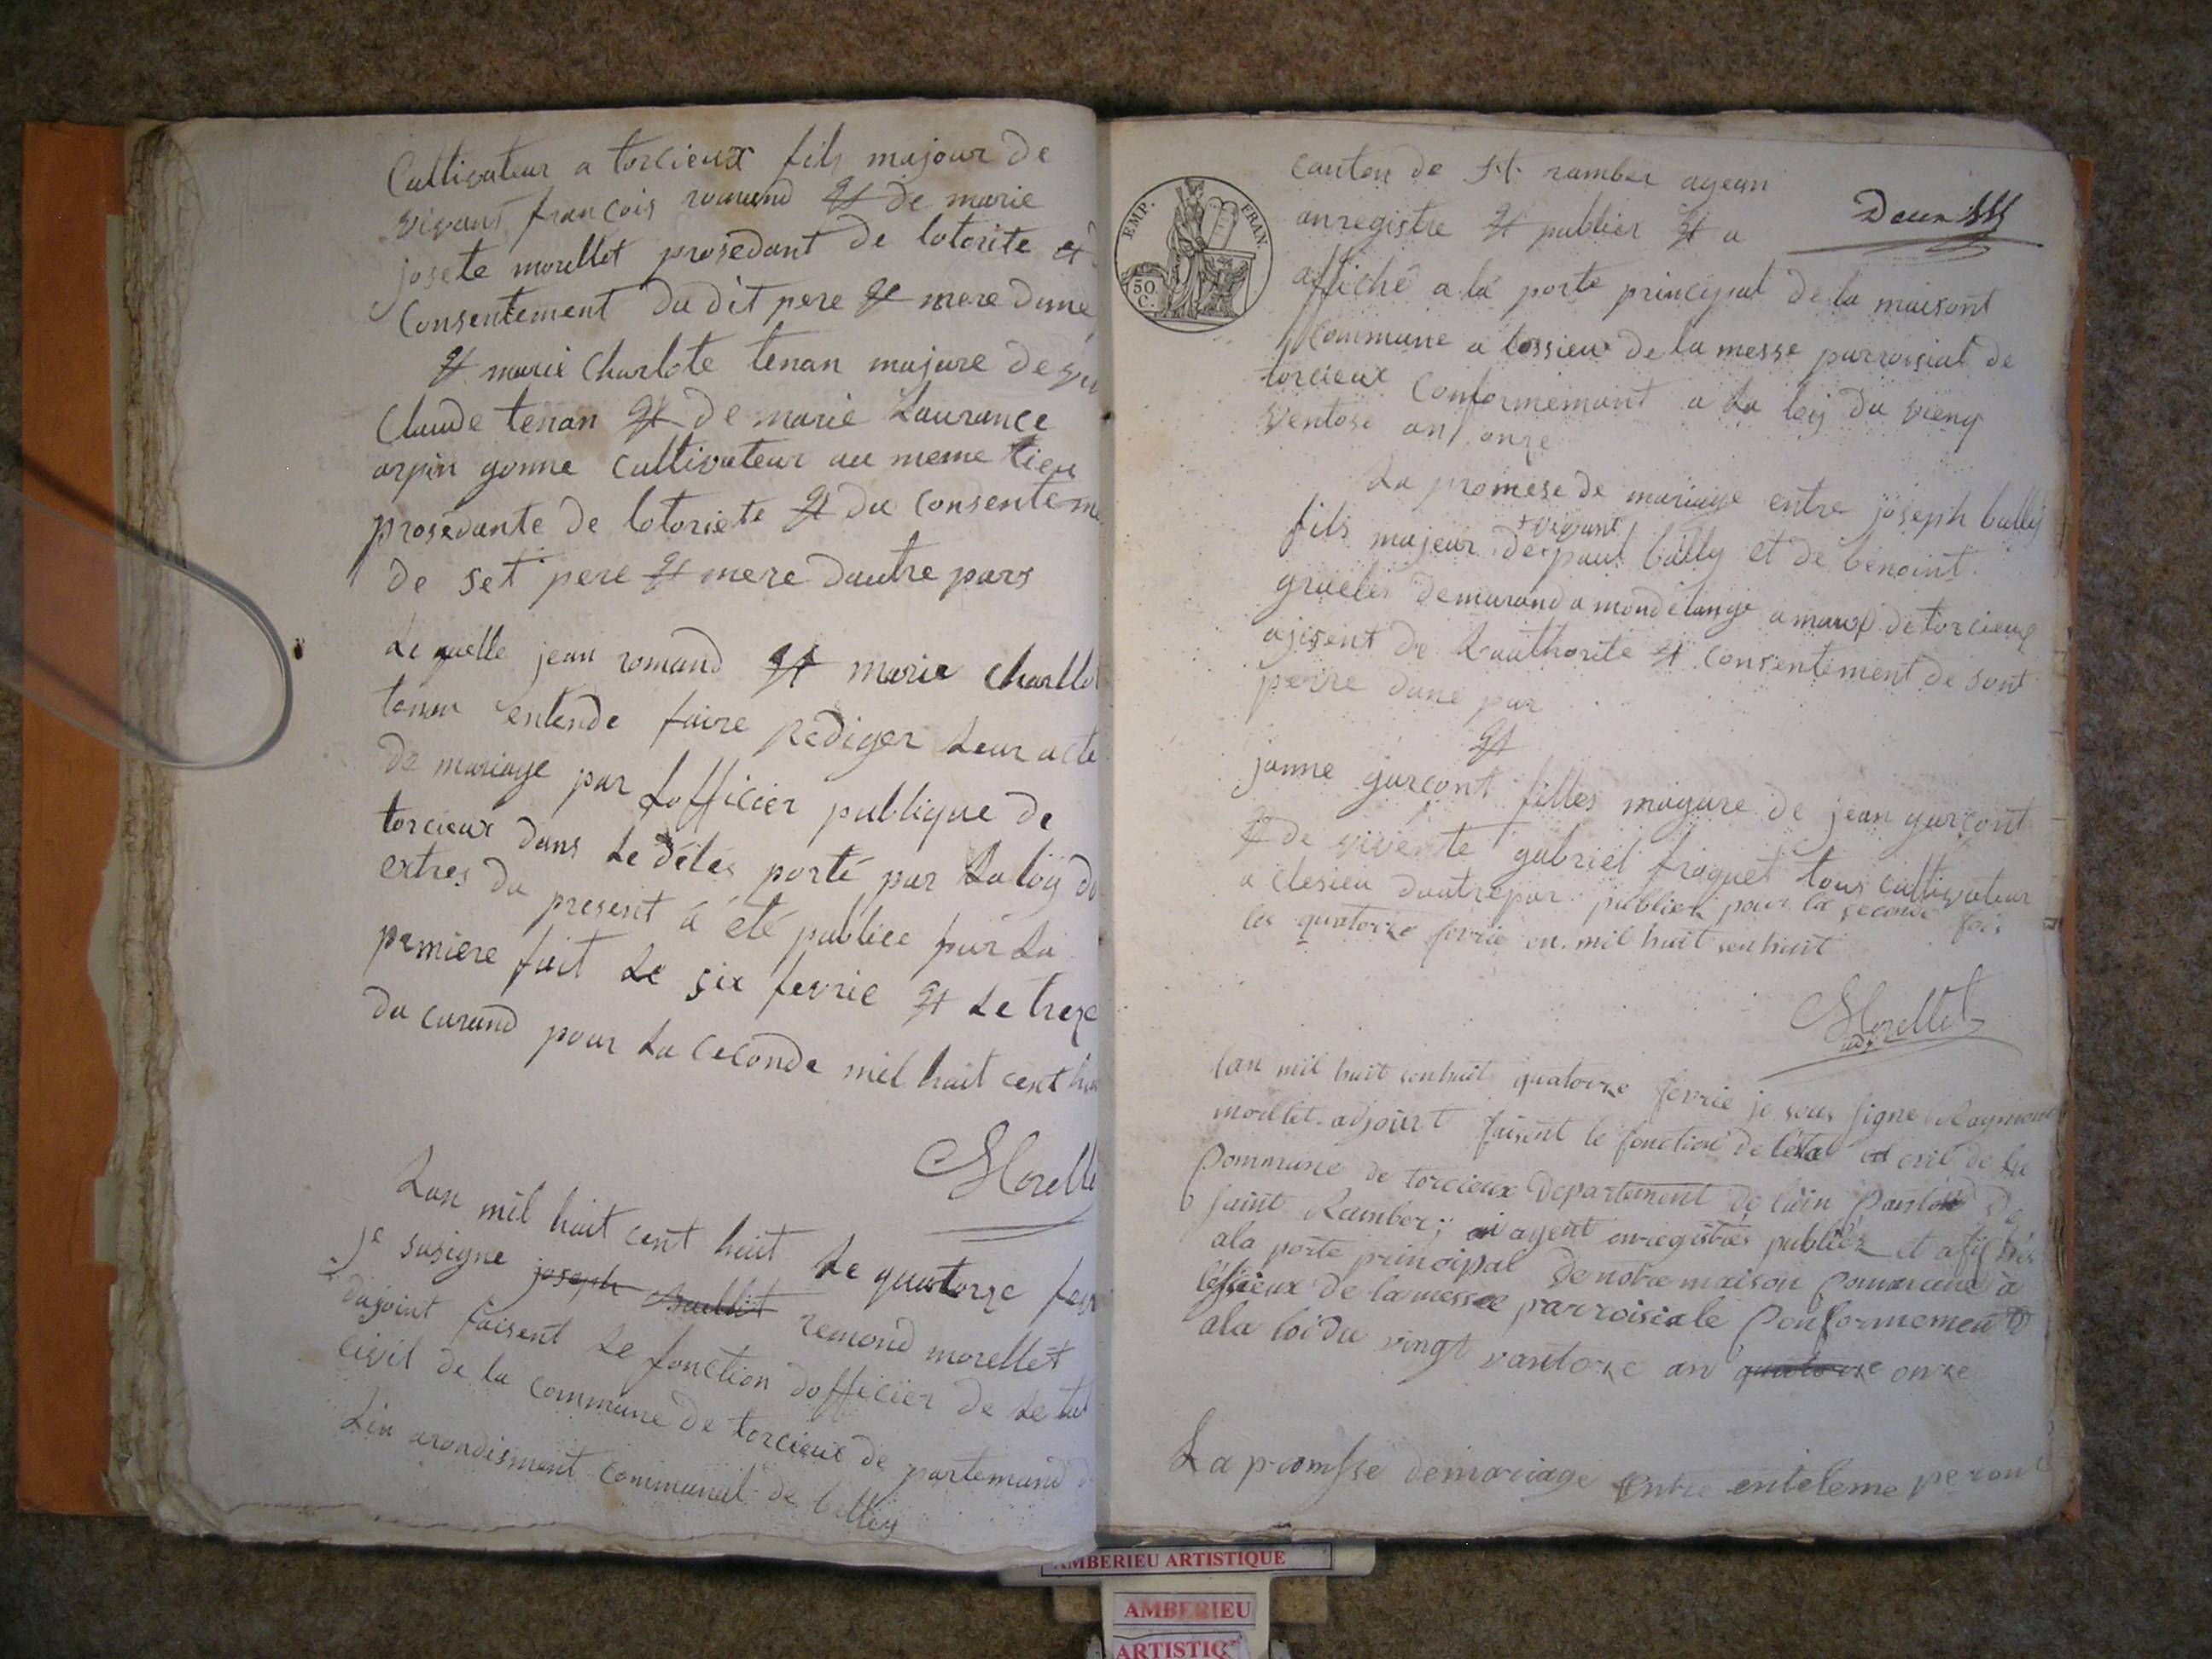 Cultivateur a torcieux fils majour de
vivant francois romand et de marie
josete morellet prosedant de lotorite et
Consentement du dit pere et mere dune
et marie Charlote tenan majure de
Claude tenan et de marie Laurance
arpin gonne Cultivateur au meme lieu
prosedante de lotoriete et du consenteme
de set pere et mere dautre pars
Le quelle jean romand et marie Charllot
tenan entende faire rediger Leur acte
de mariage par Lofficier publique de
torcieux dans Le délés porté par La loy
extres du present a été publiee pür La
premiere fait Le six fevrie et Le treze
du curand pour La ceconde mil huit cent
Morelle
Lan mil huit cent huit Le quatorze fevr
je susigne joseph remond morellet
dajoint faisent Le fonction dofficier de Le tat
civil de la commune de torcieux de partemand
Lin arondisment communal de belley
EMP. FRAN.
50 C.
canton de St. ramber ayean
anregistre et publier et a
affiché a la porte principal de la maisont
Commune a lossieu de la messe parrossial de
torcieux Conformemant a La loy du vieng
ventose an onze
La promese de mariage entre joseph bally
fils majeur de + vivant paul bally et de benoint
demurand a a de torcieux
ajisent de Lauthorite et consentement de sont
perre dune par
et
janne garcont filles magure de jean garcont
et de vivente gabriel fraquet tous cultivateur
a clesieu dautrepar publiér pour la seconde fois
les quatorze fevrie en mil huit cen huit
Morellet
adj.
lan mil huit cen huit quatorze fevrie je sous signe Raymond
morllet adjoint faisent le fonction de létat civil de la
Commune de torcieux Departement de lain Canton de
saint Rambert ai agent enregistrés publiér et afichés
ala porte principal de notre maison Commune a
léssieux de la messe parroisiale Conformement
ala loi du vingt vantoze an quatorze onze
La promesse de mariage Entre enteleme peront
AMBERIEU ARTISTIQUE
AMBERIEU
ARTISTIQ